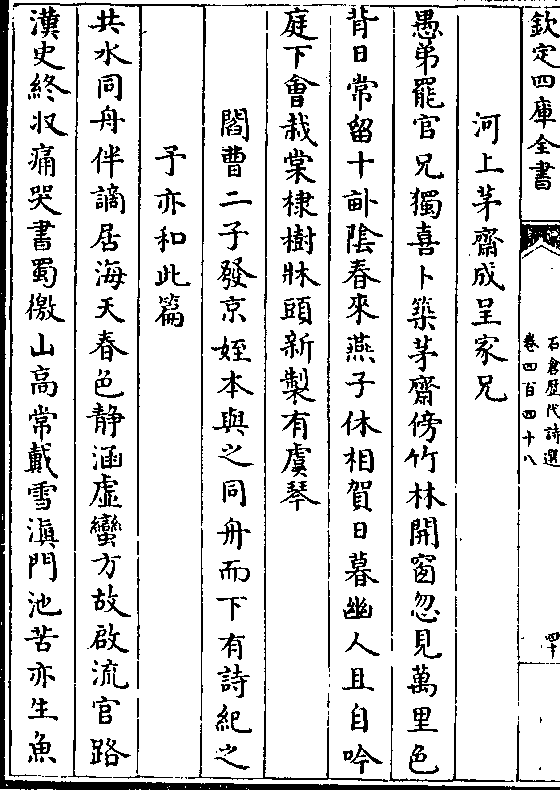 欽定四庫全書
石倉歷代詩選
卷四百四十八
四十
河上茅齋成呈家兄
愚弟罷官兄獨喜卜築茅齋傍竹林開窗忽見萬里色
背日常留十畝陰春來燕子休相賀日暮幽人且自吟
庭下會栽棠棣樹牀頭新製有虞琴
閻曹二子發京姪本與之同舟而下有詩紀之
予亦和此篇
共水同舟伴謫居海天春色靜涵虛蠻方故啟流官路
漢史終収痛哭書蜀徼山高常戴雪滇門池苦亦生魚